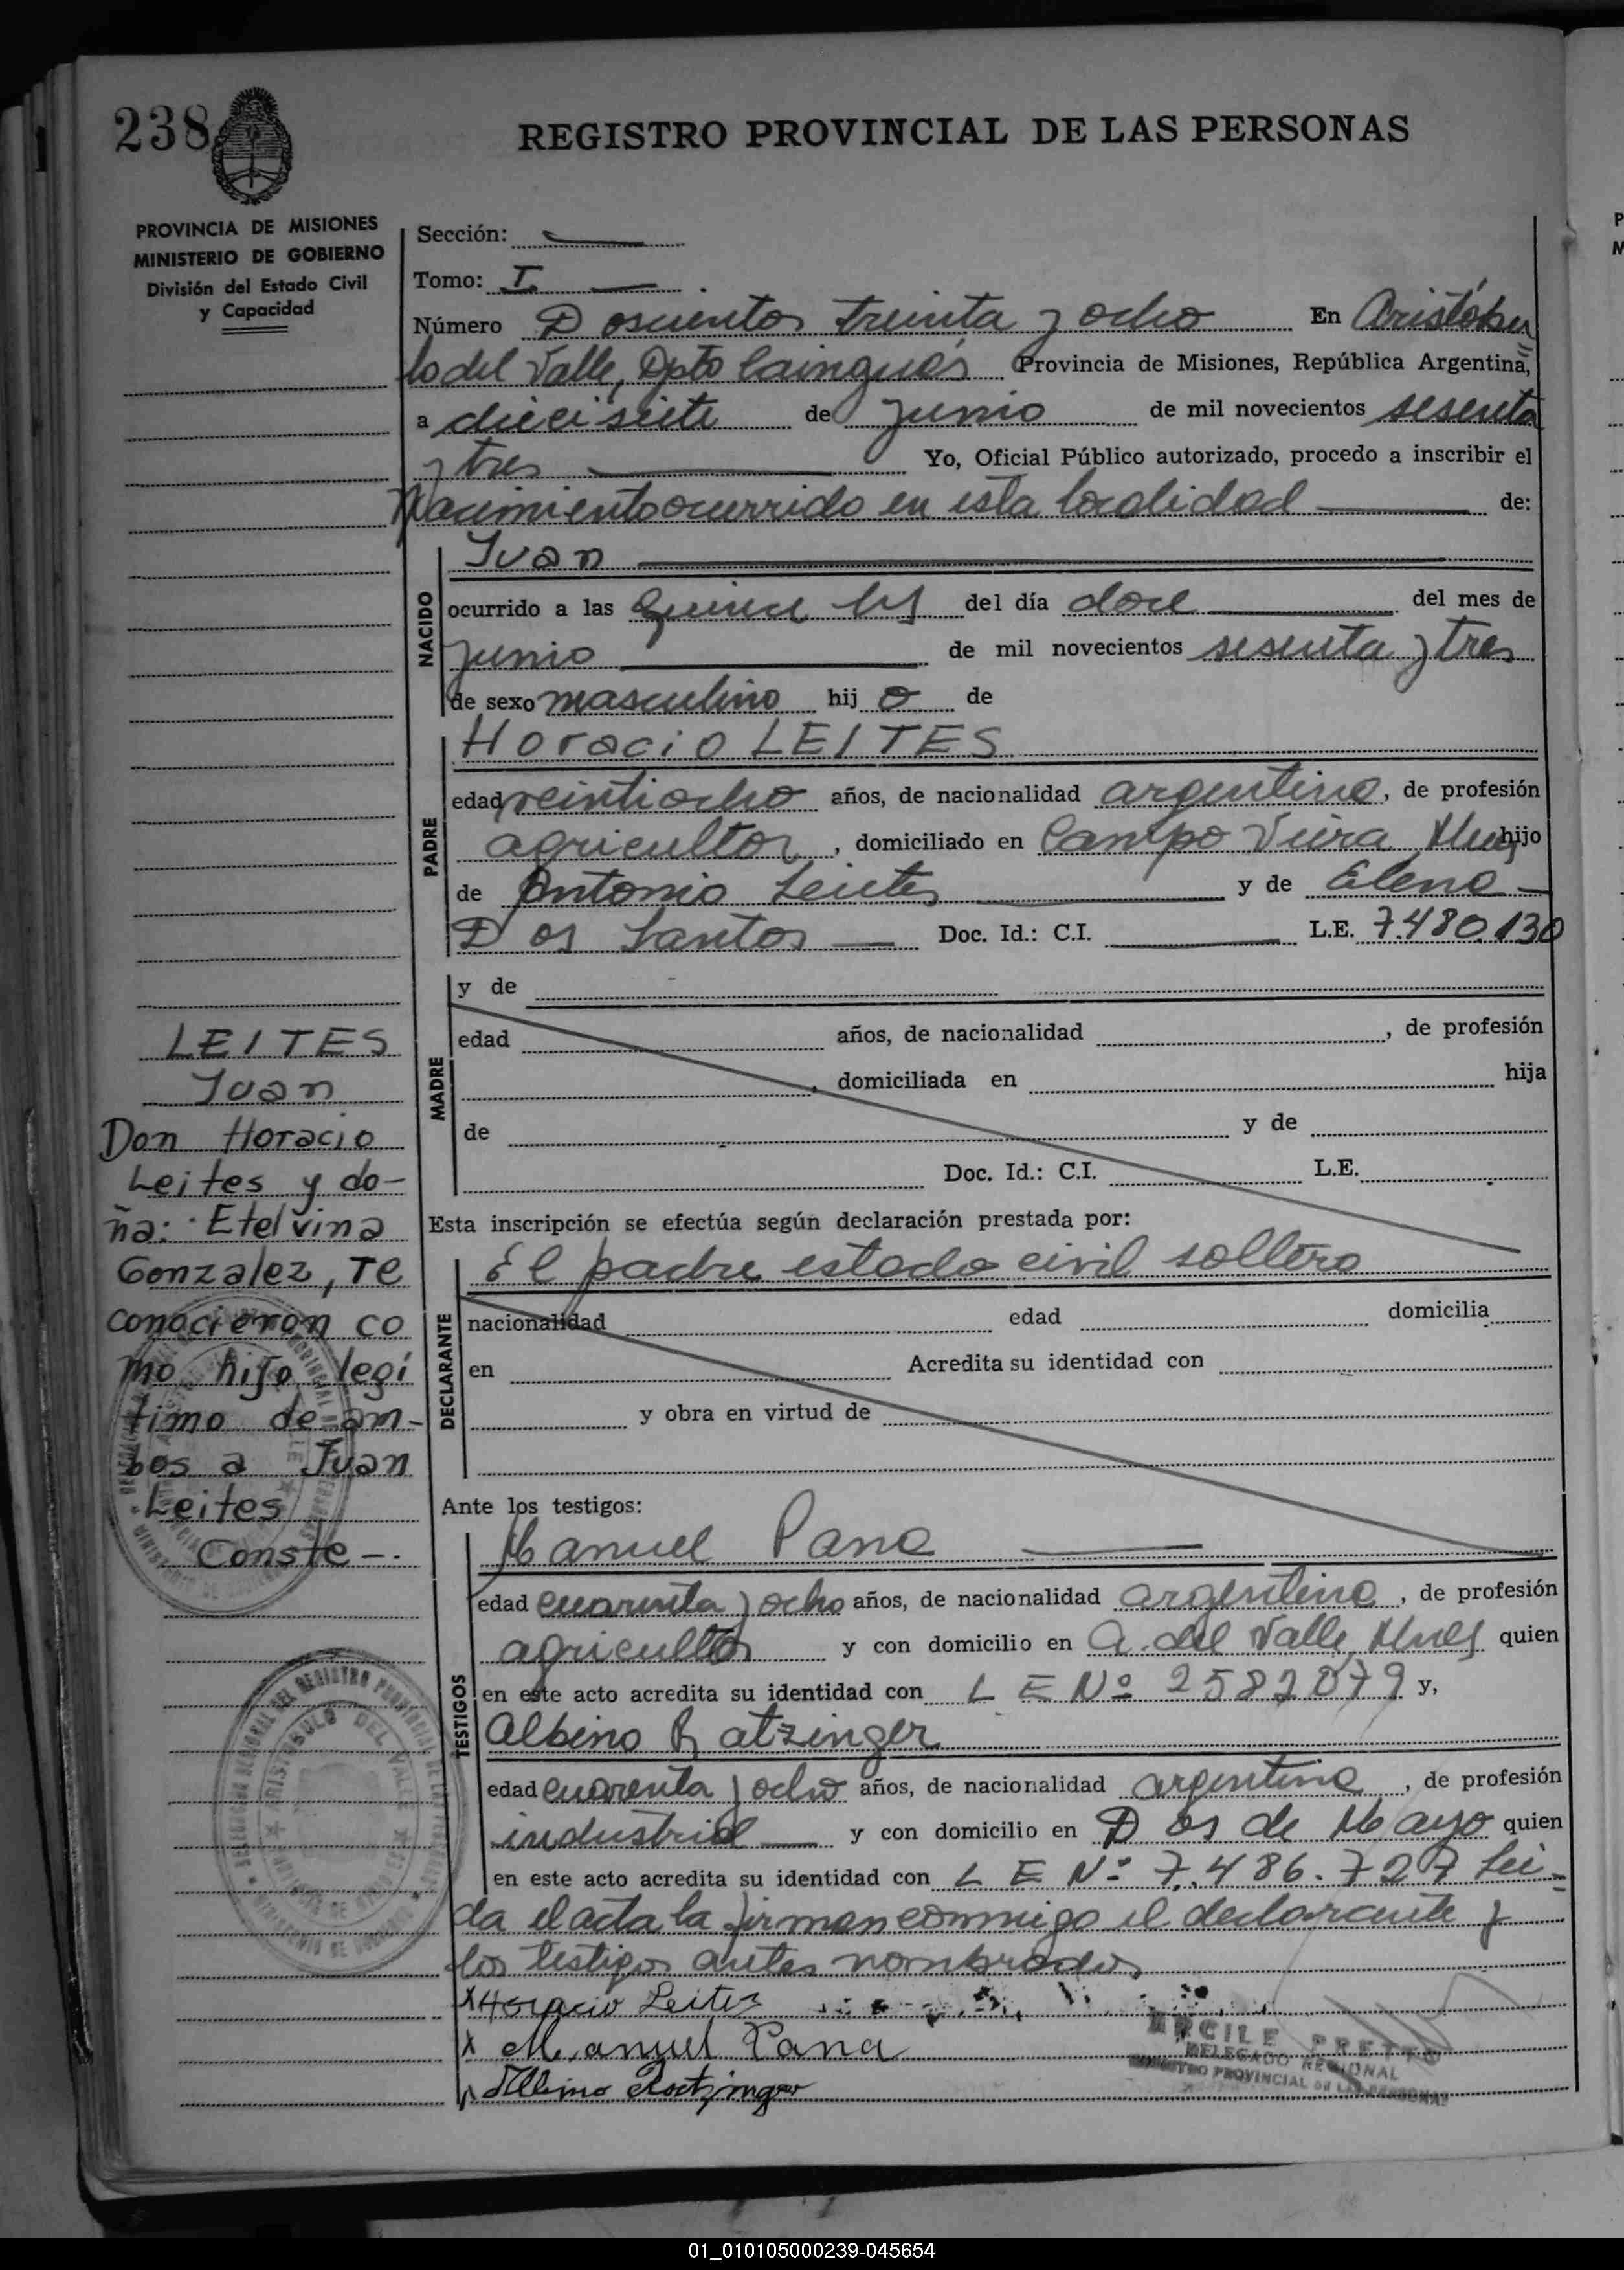 238
REGISTRO PROVINCIAL DE LAS PERSONAS
PROVINCIA DE MISIONES
MINISTERIO DE GOBIERNO
División del Estado Civil
y Capacidad
Sección:
Tomo: I.
Número Doscientos treinta y ocho En Aristóbu
lo del Valle, Dpto Cainguás Provincia de Misiones, República Argentina,
a diecisiete de Junio de mil novecientos sesenta
y tres Yo, Oficial Público autorizado, procedo a inscribir el
Nacimiento ocurrido en esta localidad de:
NACIDO
Juan
ocurrido a las Quince hs del día doce del mes de
Junio de mil novecientos sesenta y tres
de sexo masculino hij o de
PADRE
Horacio LEITES
edad veintiocho años, de nacionalidad argentino, de profesión
agricultor, domiciliado en Campo Viera Mnes hijo
de Antonio Leites y de Elena
Dos Santos Doc. Id.: C.I. L.E. 7.480.130
MADRE
y de
edad años, de nacionalidad , de profesión
, domiciliada en hija
de y de
Doc. Id.: C.I. L.E.
Esta inscripción se efectúa según declaración prestada por:
DECLARANTE
El padre estado civil soltero
nacionalidad edad domicilia
en Acredita su identidad con
y obra en virtud de
Ante los testigos:
TESTIGOS
Manuel Pana
edad cuarenta y ocho años, de nacionalidad argentino, de profesión
agricultor y con domicilio en A. del Valle, Mnes quien
en este acto acredita su identidad con L E Nº 2582079 y,
Albino Ratzinger
edad cuarenta y ocho años, de nacionalidad argentino, de profesión
industrial y con domicilio en Dos de Mayo quien
en este acto acredita su identidad con L E Nº 7.486.727 Leí-
da el acta la firman conmigo el declarante y
los testigos antes nombrados
X Horacio Leites
X Manuel Pana
Albino Ratzinger
LEITES
Juan
Don Horacio
Leites y do-
ña: Etelvina
Gonzalez, re
conocieron co
mo hijo legí
timo de am-
bos a Juan
Leites
Conste-.
ERCILE PRETTO
DELEGADO REGIONAL
REGISTRO PROVINCIAL DE LAS PERSONAS
01_010105000239-045654